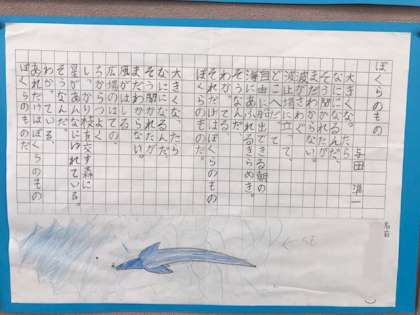 ぼくらのもの
与田 準一
大きくなったら
なにになるんだ、
そう聞かれたが
まだわからない。
波がさわぐ
波止場に立って、
どこへだって
自由に船出できる朝の
海にあふれるきらめき。
そうなんだ。
わかってる
それだけはぼくらのもの
ぼくらのものだ。
大きくなったら
なにになるんだ、
そう聞かれたが
まだわからない。
風がはしる
広場のはての
ちからづよく
しっかり枝を交す森に
星があんなにゆれている。
そうなんだ。
わかっている、
あれだけはぼくらのもの
ぼくらのものだ
名前